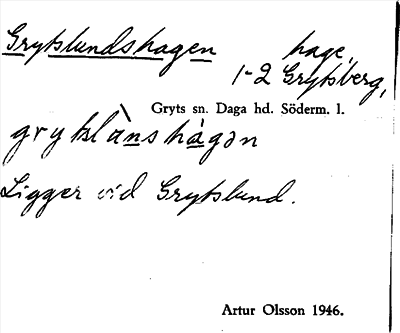 Grytslundshagen hage,
1-2 Grytsberg,
Gryts sn. Daga hd. Söderm. l.
grytslànshàgən
Ligger vid Grytslund.
Artur Olsson 1946.